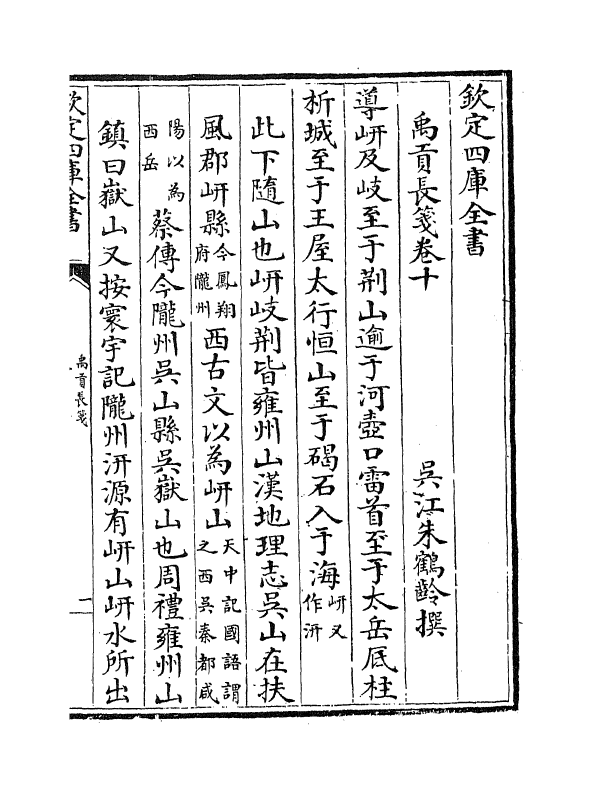 欽定四庫全書
禹貢長箋卷十
吳江朱鶴齡撰
導岍及岐至于荆山逾于河壺口雷首至于太岳厎柱
析城至于王屋太行恒山至于碣石入于海岍又作汧
此下隨山也岍岐荆皆雍州山漢地理志吳山在扶
風郡岍縣今鳳翔府隴州西古文以為岍山天中記國語謂之西吳秦都咸
陽以為西岳蔡傳今隴州吳山縣吳嶽山也周禮雍州山
鎮曰嶽山又按寰宇記隴州汧源有岍山岍水所出
欽定四庫全書
禹貢長箋
一